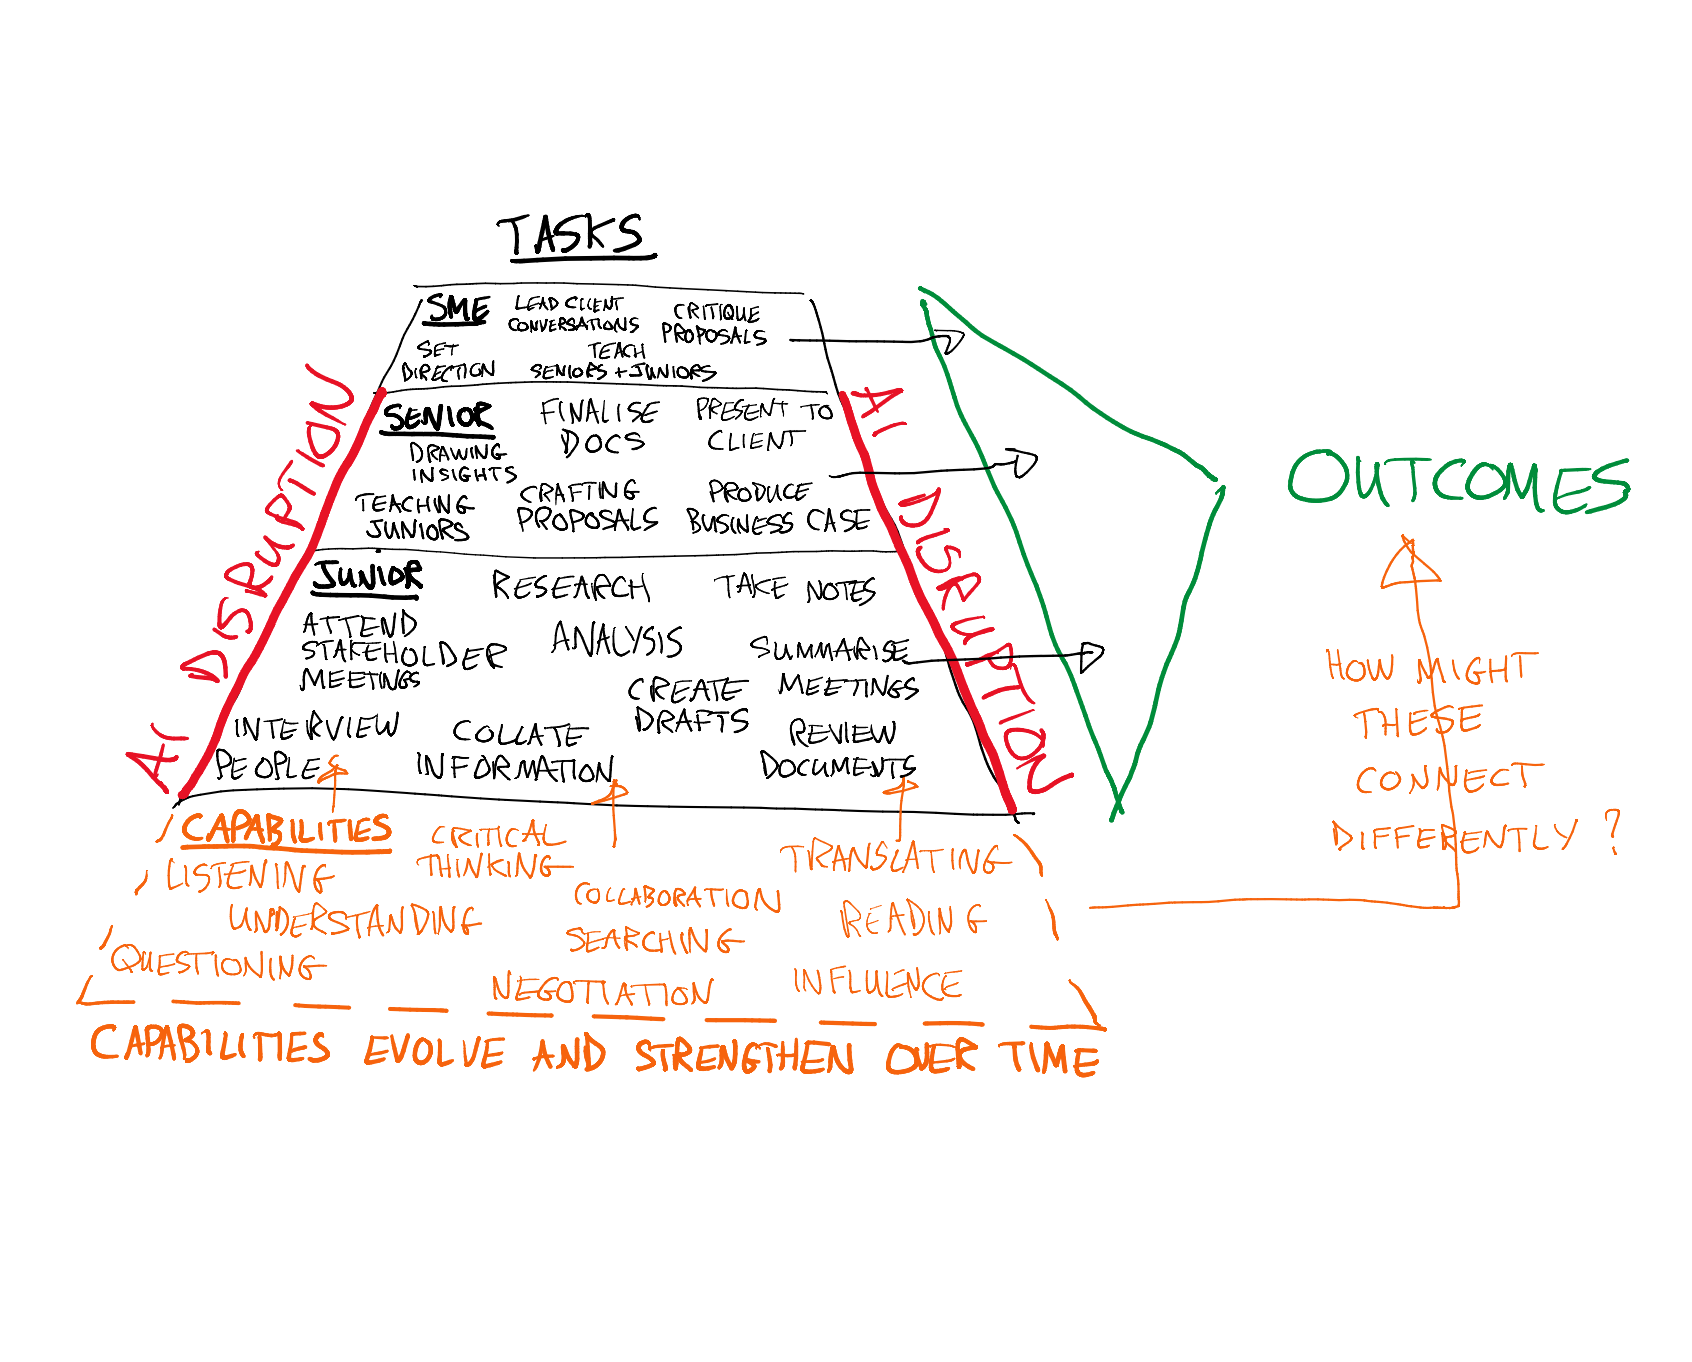 TASKS
SME
LEAD CLIENT
CONVERSATIONS
CRITIQUE
PROPOSALS
SET
DIRECTION
TEACH
SENIORS + JUNIORS
SENIOR
FINALISE
DOCS
PRESENT TO
CLIENT
DRAWING
INSIGHTS
TEACHING
JUNIORS
CRAFTING
PROPOSALS
PRODUCE
BUSINESS CASE
JUNIOR
RESEARCH
TAKE NOTES
ATTEND
STAKEHOLDER
MEETINGS
ANALYSIS
SUMMARISE
MEETINGS
CREATE
DRAFTS
INTERVIEW
PEOPLE
COLLATE
INFORMATION
REVIEW
DOCUMENTS
AI DISRUPTION
AI DISRUPTION
OUTCOMES
HOW MIGHT
THESE
CONNECT
DIFFERENTLY ?
CAPABILITIES
CRITICAL
THINKING
TRANSLATING
LISTENING
COLLABORATION
UNDERSTANDING
READING
SEARCHING
QUESTIONING
NEGOTIATION
INFLUENCE
CAPABILITIES EVOLVE AND STRENGTHEN OVER TIME